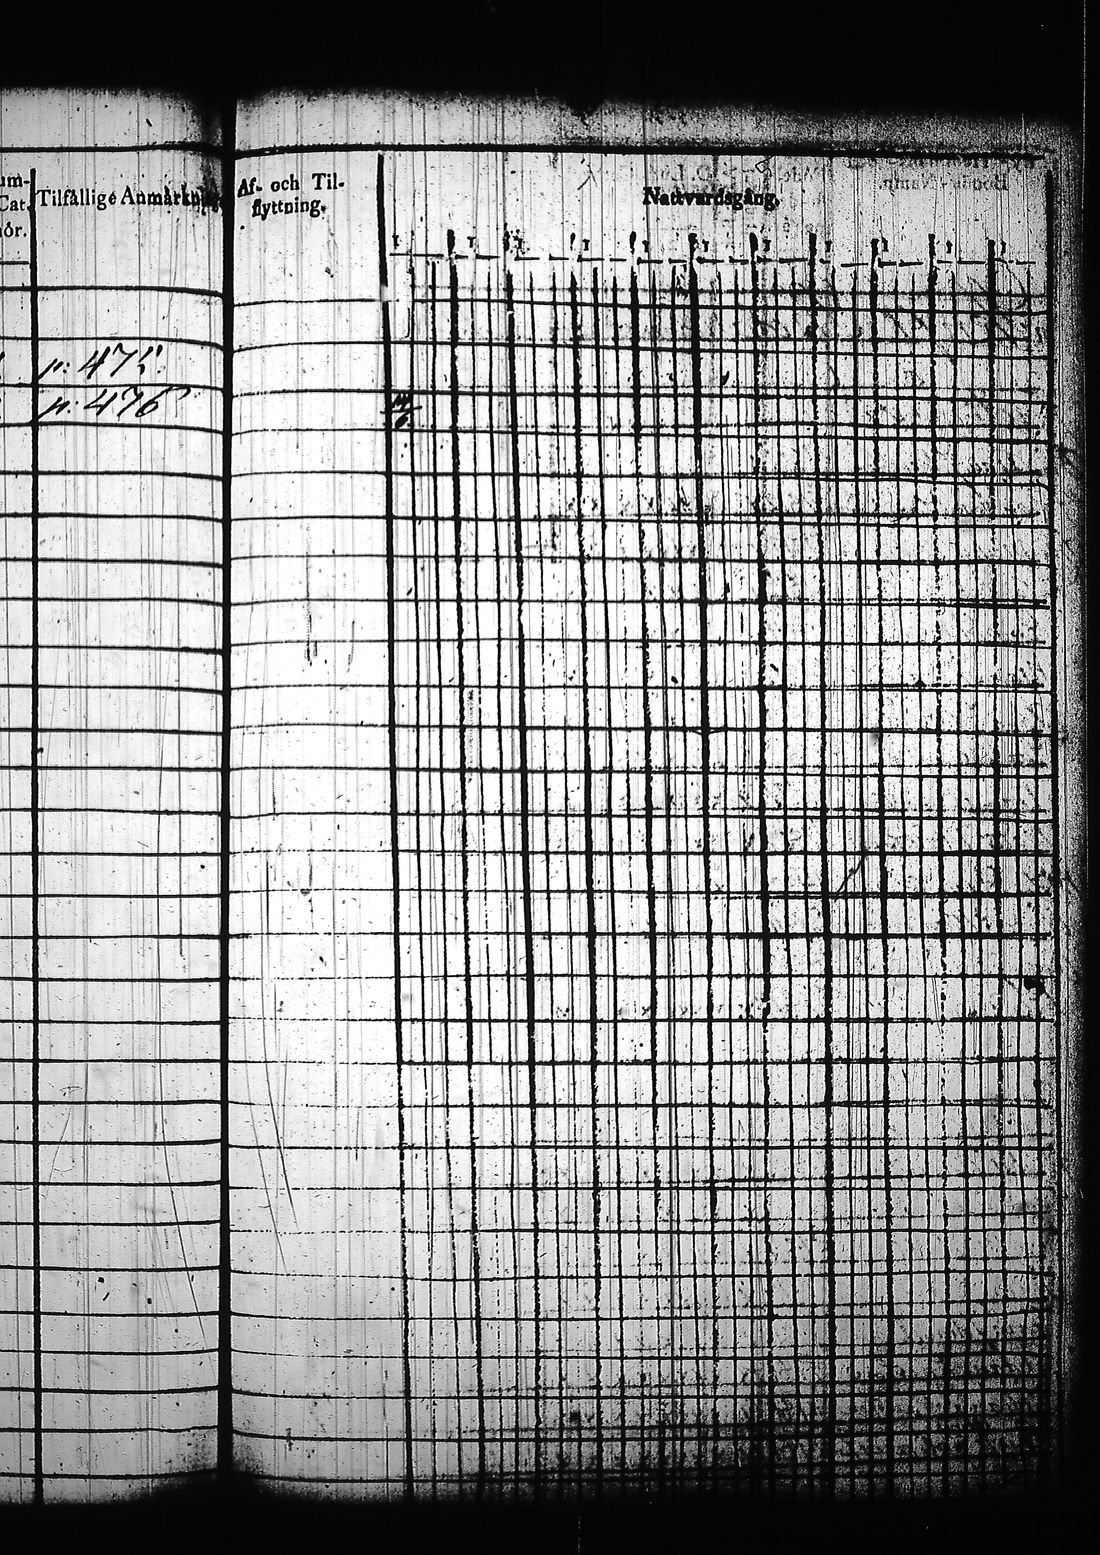 Tilfällige Anmärkning
Af- och Til-
flyttning.
Nattvardsgång.
p: 475.
p: 476